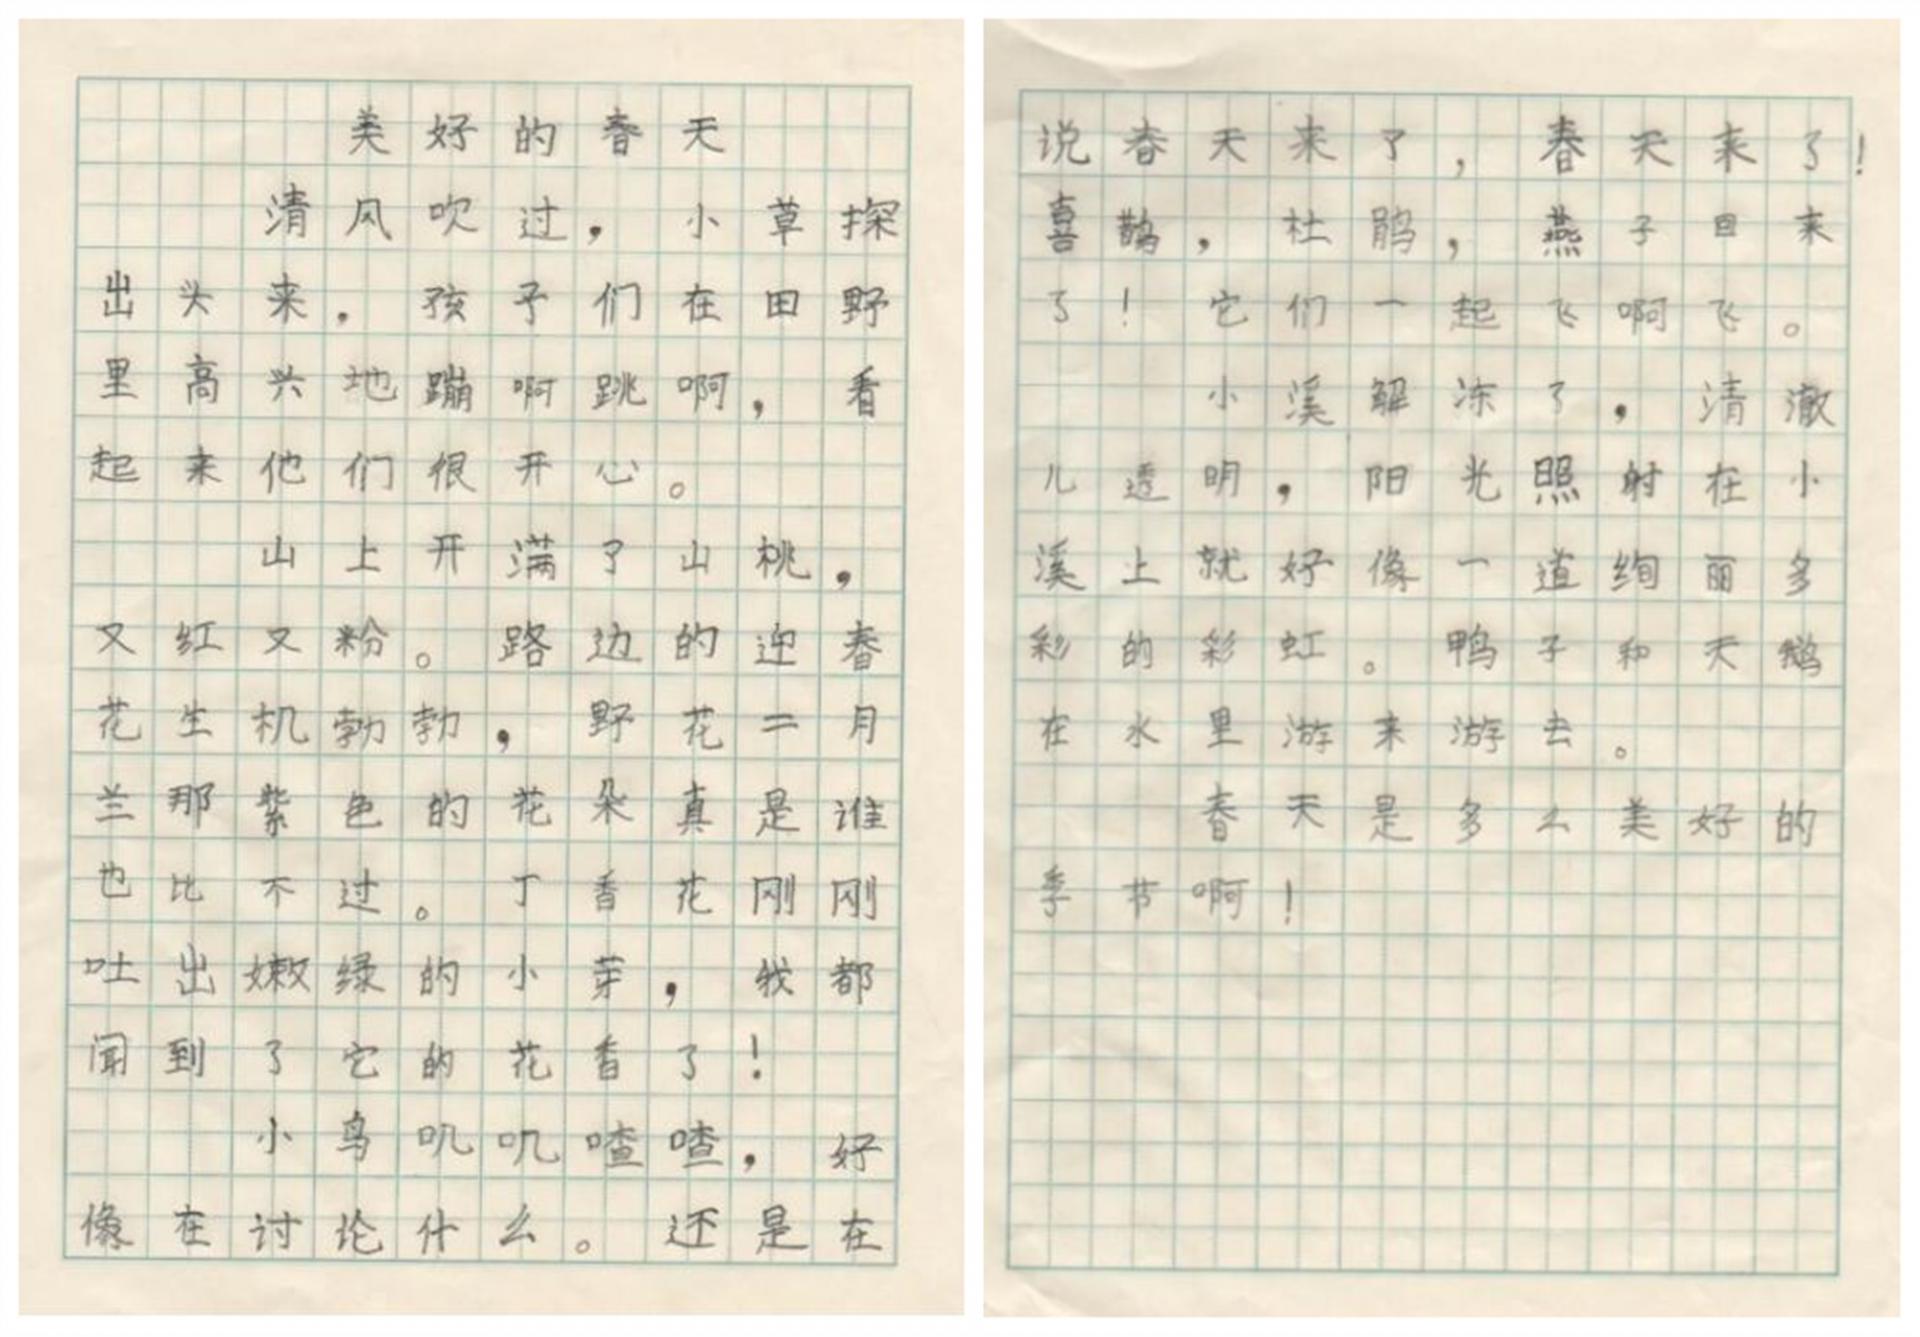 美好的春天
清风吹过，小草探
出头来，孩子们在田野
里高兴地蹦啊跳啊，看
起来他们很开心。
山上开满了山桃，
又红又粉。路边的迎春
花生机勃勃，野花二月
兰那紫色的花朵真是谁
也比不过。丁香花刚刚
吐出嫩绿的小芽，我都
闻到了它的花香了！
小鸟叽叽喳喳，好
像在讨论什么。还是在
说春天来了，春天来了！
喜鹊，杜鹃，燕子回来
了！它们一起飞啊飞。
小溪解冻了，清澈
儿透明，阳光照射在小
溪上就好像一道绚丽多
彩的彩虹。鸭子和天鹅
在水里游来游去。
春天是多么美好的
季节啊！